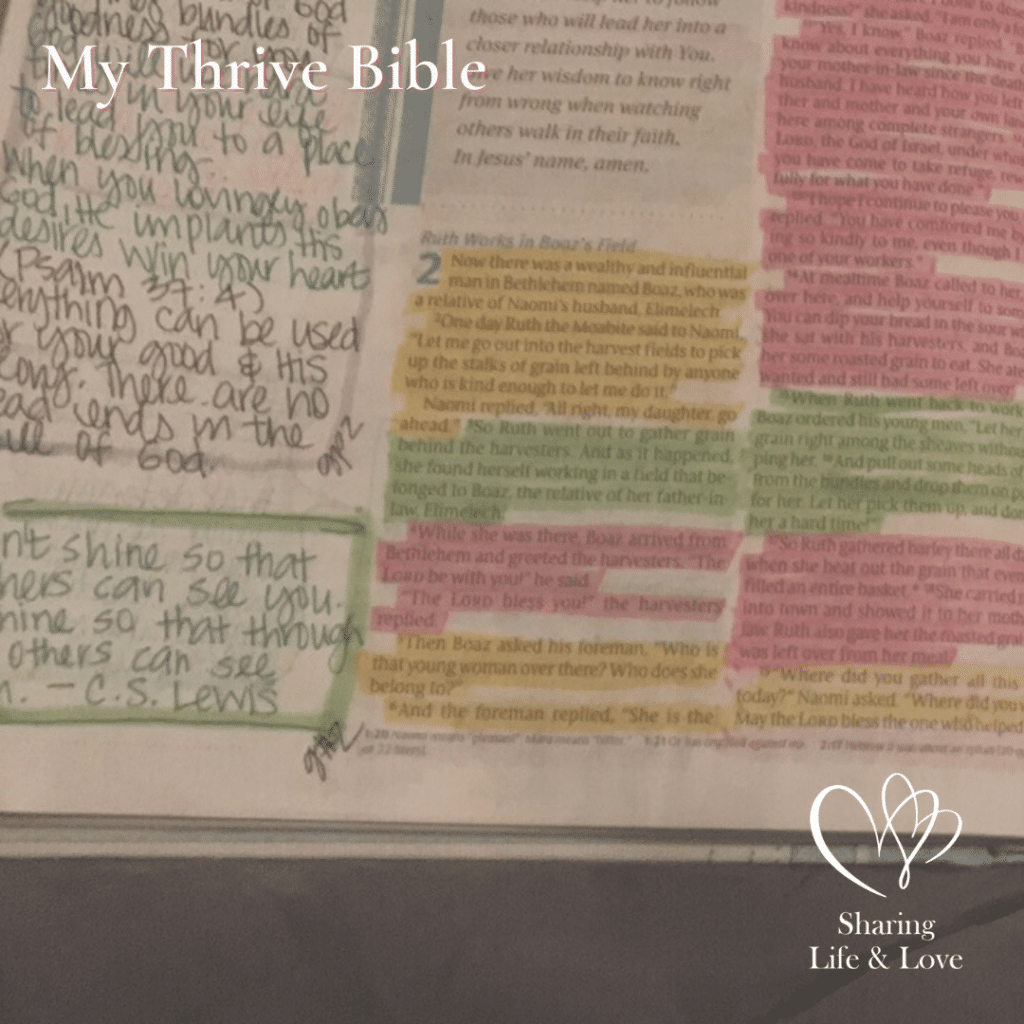 My Thrive Bible
God
goodness bundles of
to lead in your life
of blessing. you to a place
When you lovingly obey
God, He implants His
desires w/in your heart
(Psalm 37:4)
everything can be used
your good & His
There are no
ends in the
of God.
n't shine so that
hers can see you.
hine so that through
others can see
— C.S. Lewis
those who will lead her into a
closer relationship with You.
her wisdom to know right
from wrong when watching
others walk in their faith.
In Jesus' name, amen.
Ruth Works in Boaz's Field
2 Now there was a wealthy and influential
man in Bethlehem named Boaz, who was
a relative of Naomi's husband, Elimelech.
2One day Ruth the Moabite said to Naomi,
"Let me go out into the harvest fields to pick
up the stalks of grain left behind by anyone
who is kind enough to let me do it."
Naomi replied, "All right, my daughter, go
ahead." 3So Ruth went out to gather grain
behind the harvesters. And as it happened,
she found herself working in a field that be-
longed to Boaz, the relative of her father-in-
law, Elimelech.
4While she was there, Boaz arrived from
Bethlehem and greeted the harvesters. "The
LORD be with you!" he said.
"The LORD bless you!" the harvesters
replied.
5Then Boaz asked his foreman, "Who is
that young woman over there? Who does she
belong to?"
6And the foreman replied, "She is the
kindness?" she asked. "I am only a
"Yes, I know," Boaz replied. "B
know about everything you have d
your mother-in-law since the death
husband. I have heard how you left
ther and mother and your own lan
here among complete strangers.
LORD, the God of Israel, under who
you have come to take refuge, rew
fully for what you have done."
"I hope I continue to please you
replied. "You have comforted me by
ing so kindly to me, even though I
one of your workers."
14At mealtime Boaz called to her,
over here, and help yourself to som
You can dip your bread in the sour w
she sat with his harvesters, and Boa
her some roasted grain to eat. She ate
wanted and still had some left over.
15When Ruth went back to work
Boaz ordered his young men, "Let her
grain right among the sheaves withou
ping her. 16And pull out some heads of
from the bundles and drop them on p
for her. Let her pick them up, and don
her a hard time!"
17So Ruth gathered barley there all d
when she beat out the grain that even
filled an entire basket. 18She carried
into town and showed it to her moth
law. Ruth also gave her the roasted grai
was left over from her meal.
19"Where did you gather all this
today?" Naomi asked. "Where did you w
May the LORD bless the one who helped
1:20 Naomi means "pleasant"; Mara means "bitter."
Sharing
Life & Love